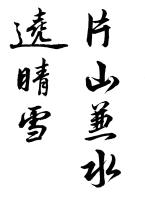 片山兼水
遶晴雪